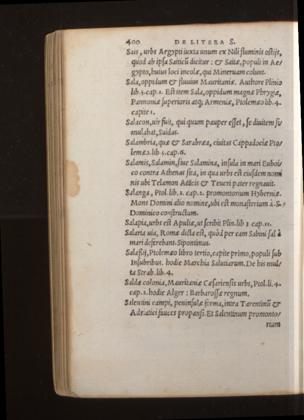 400 DE LITERA S.
Sais, urbs Aegypti iuxta unum ex Nili fluminis ostijs,
quod ab ipsa Saiticũ dicitur : & Saitæ, populi in Ae-
gypto, huius loci incolæ, qui Mineruam colunt.
Sala, oppidum & fluuius Mauritaniæ. Authore Plinio
lib. 5. cap. 1. Est item Sala, oppidum magnæ Phrygiæ,
Pannoniæ superioris atq; Armeniæ, Ptolemæo lib. 4.
capite 1.
Salacon, uir fuit, qui quum pauper esset, se diuitem si-
mulabat, Suidas.
Salambria, quæ & Sarabræa, ciuitas Cappadociæ Pto-
lemæo. lib 5. cap. 6.
Salamis, Salamin, siue Salamina, insula in mari Euboi-
co contra Athenas sita, in qua urbs est eiusdem nomi
nis ubi Telamon Aiacis & Teucri pater regnauit.
Salanga, Ptol. lib. 2. cap. 2. promontorium Hyberniæ.
Mons Domini alio nomine, ubi est monasterium à S.
Dominico constructum.
Salapia, urbs est Apuliæ, ut scribit Plin. lib 3 cap. 11.
Salaria uia, Romæ dicta est, quòd per eam Sabini sal à
mari deferebant. Sipontinus.
Salassij, Ptolemæo libro tertio, capite primo, populi sub
Insubribus. hodie Marchia Salutiarum. De his mul-
ta Strab. lib. 4.
Saldæ colonia, Mauritaniæ Cæsariensis urbs, Ptol. li. 4.
cap. 2. hodie Alger : Barbarossæ regnum.
Salentini campi, peninsulæ forma, intra Tarentinũ &
Adriatici fauces propansi. Et Salentinum promonto-
rium